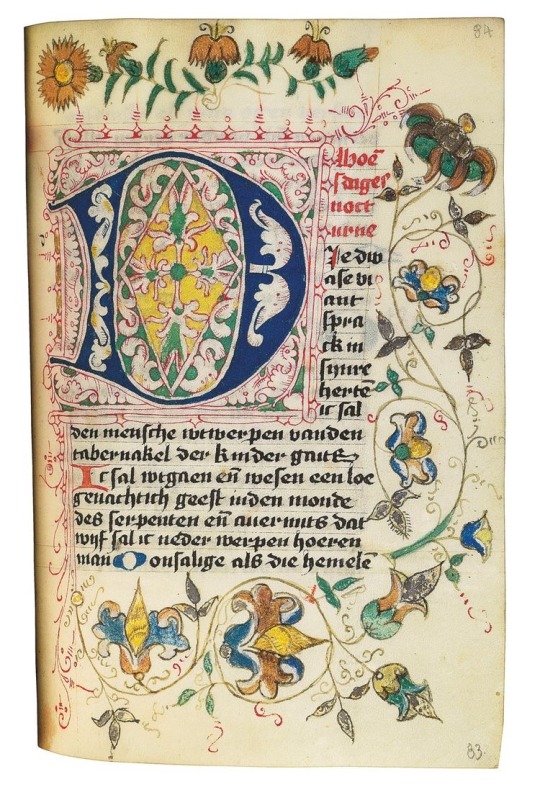 84
Woē
sdages
noct
urne
Die dw
ase vi
ant
spra
ck in
synre
hertē
ic sal
den mensche wtwerpen vanden
tabernakel der kinder gaits
Ic sal wtgaen eñ wesen een loe
genachtich geest inden monde
des serpenten eñ auermits dat
wyf sal ic neder werpen hoeren
man O onsalige als die hemele
83